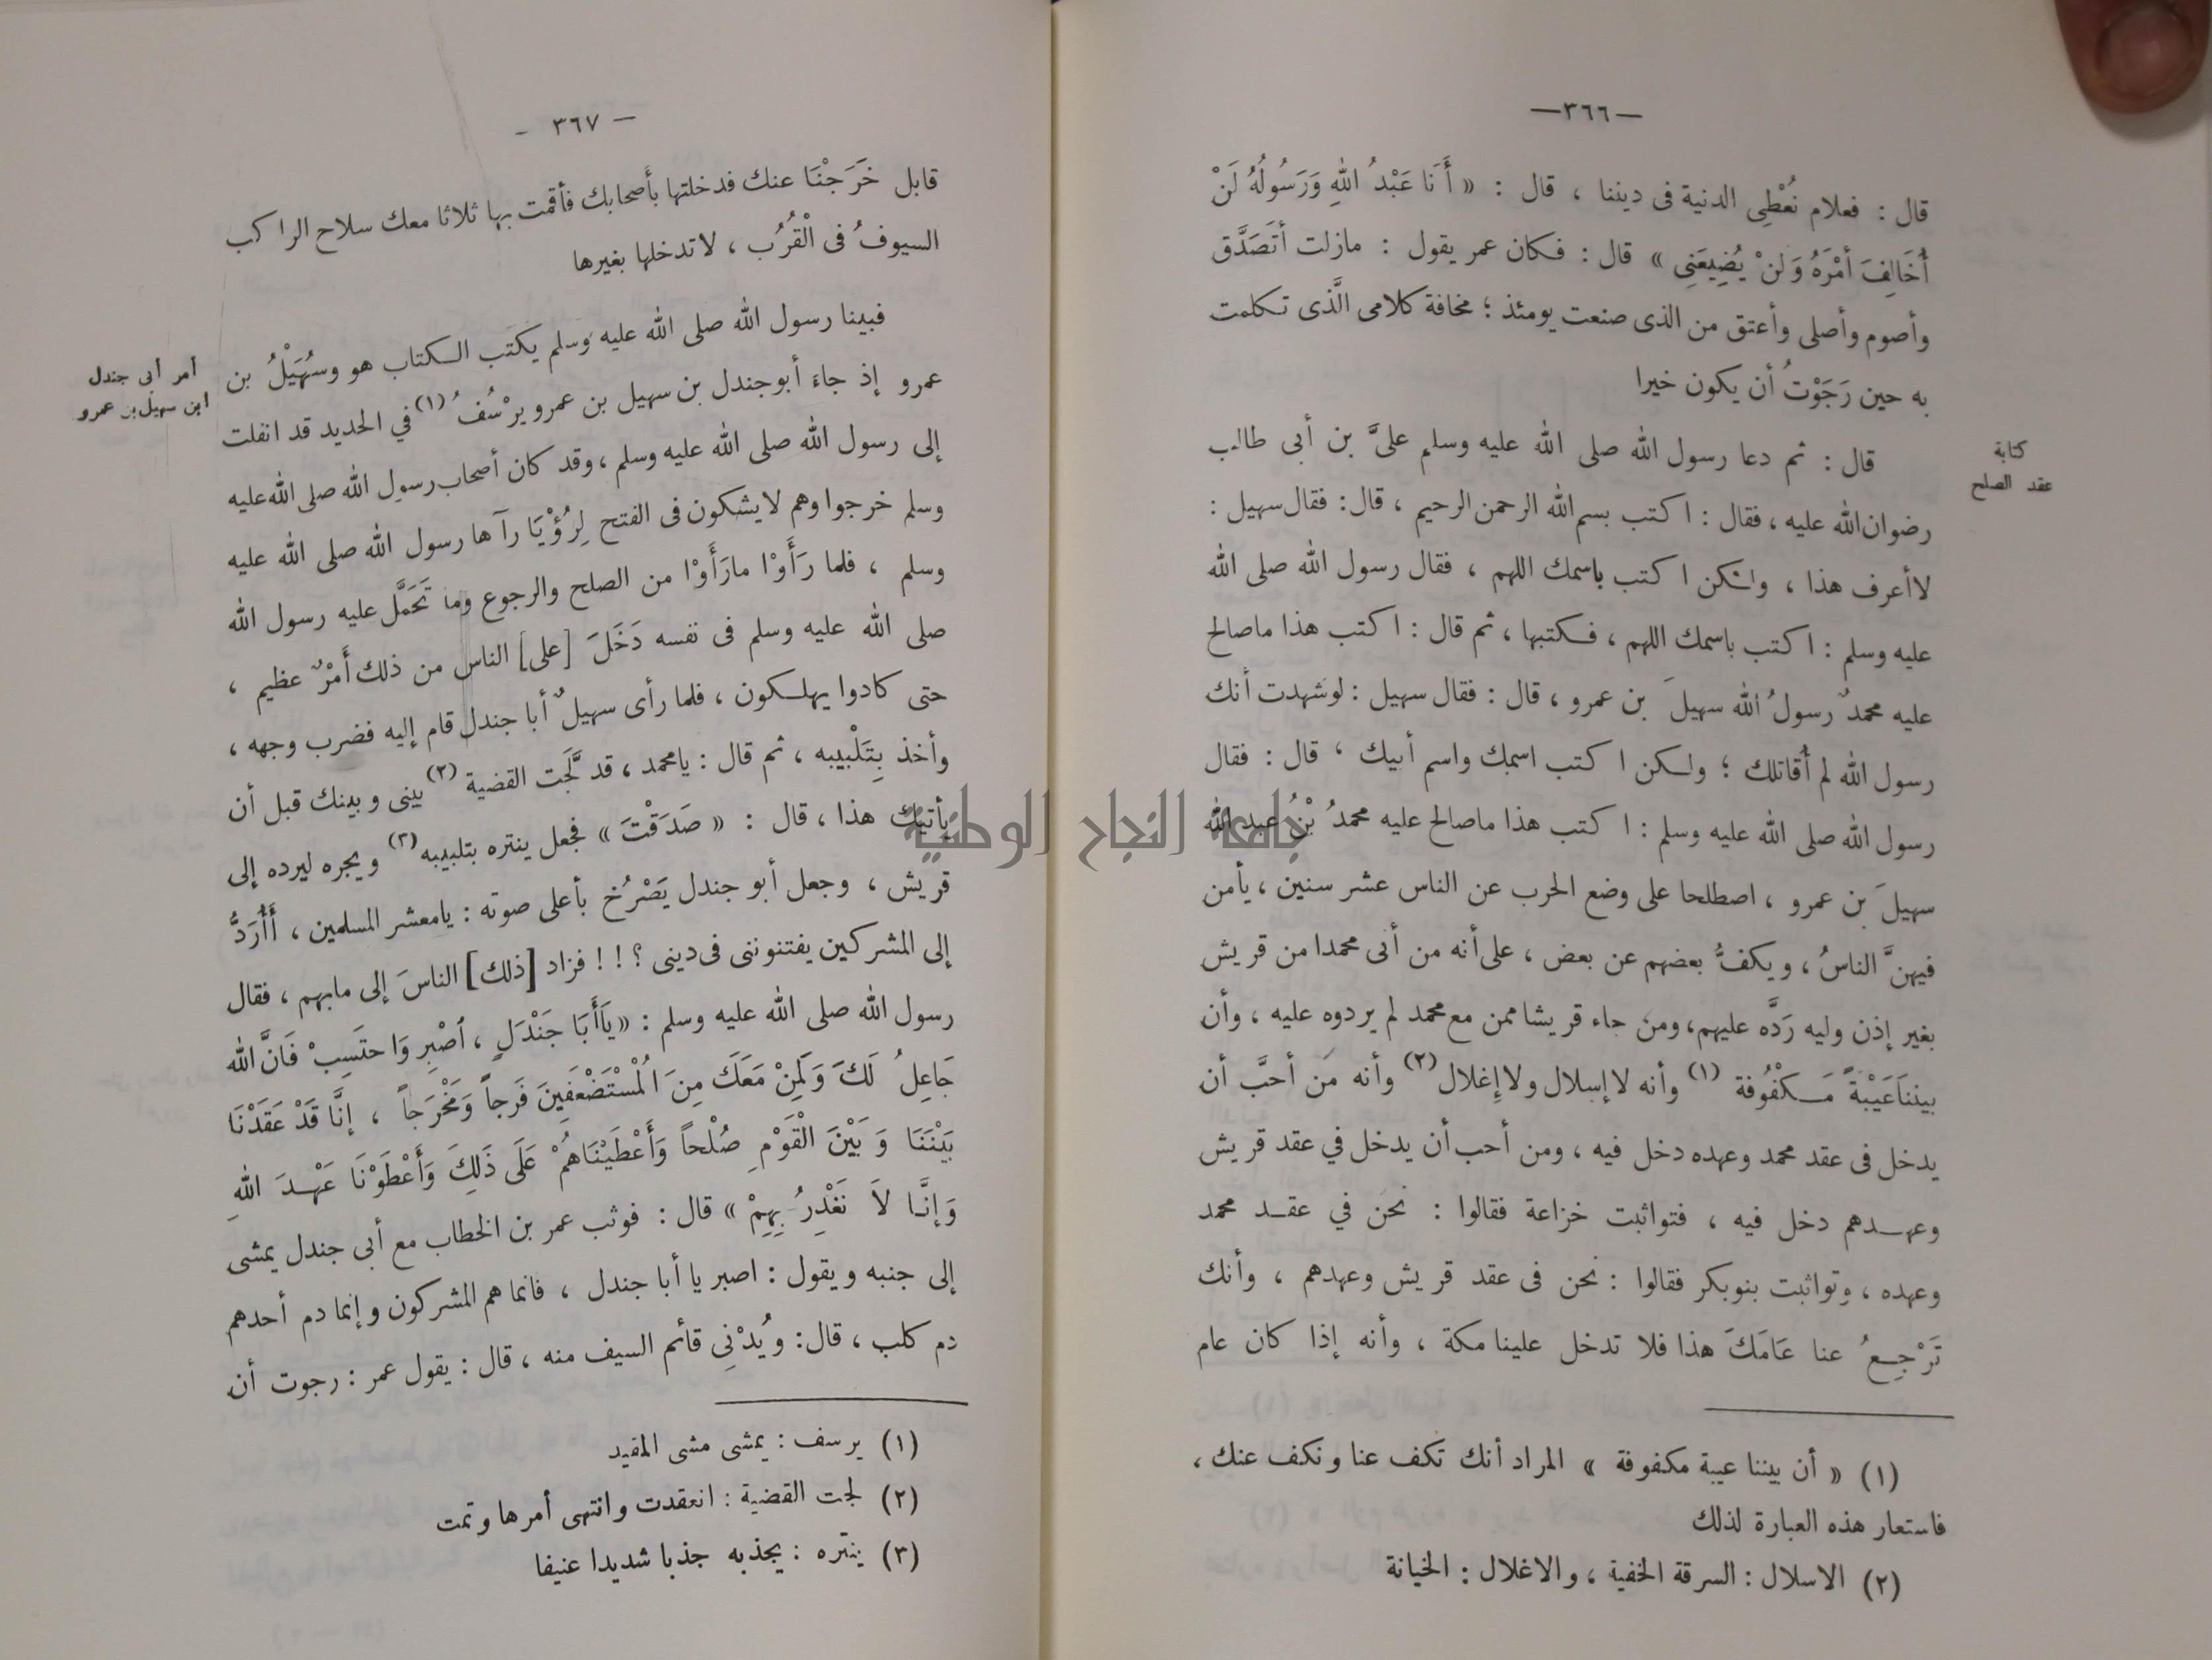 —٣٦٦—
قال : فعلام نُعْطِى الدنية فى ديننا ، قال : « أَنَا عَبْدُ اللهِ وَرَسُولُهُ لَنْ
أُخَالِفَ أَمْرَهُ وَلَنْ يُضِيعَنِى » قال : فكان عمر يقول : مازلت أَتَصَدَّق
وأصوم وأصلى وأعتق من الذى صنعت يومئذ ؛ مخافة كلامى الَّذى تكلمت
به حين رَجَوْتُ أن يكون خيرا
كتابة
عقد الصلح
قال : ثم دعا رسول الله صلى الله عليه وسلم علىَّ بن أبى طالب
رضوان الله عليه ، فقال : اكتب بسم الله الرحمن الرحيم ، قال : فقال سهيل :
لاأعرف هذا ، ولكن اكتب باسمك اللهم ، فقال رسول الله صلى الله
عليه وسلم : اكتب باسمك اللهم ، فكتبها ، ثم قال : اكتب هذا ماصالح
عليه محمدٌ رسولُ الله سهيلَ بن عمرو ، قال : فقال سهيل : لوشهدت أنك
رسول الله لم أُقاتلك ؛ ولكن اكتب اسمك واسم أبيك ، قال : فقال
رسول الله صلى الله عليه وسلم : اكتب هذا ماصالح عليه محمدُ بْنُ عبد الله
سهيلَ بن عمرو ، اصطلحا على وضع الحرب عن الناس عشر سنين ، يأمن
فيهنَّ الناسُ ، ويكفُّ بعضهم عن بعض ، على أنه من أتى محمدا من قريش
بغير إذن وليه رَدَّه عليهم ، ومن جاء قريشا ممن مع محمد لم يردوه عليه ، وأن
بيننَا عَيْبَةً مَكْفُوفة (١) وأنه لاإسلال ولاإِغلال (٢) وأنه مَن أحبَّ أن
يدخل فى عقد محمد وعهده دخل فيه ، ومن أحب أن يدخل في عقد قريش
وعهدهم دخل فيه ، فتواثبت خزاعة فقالوا : نحن في عقد محمد
وعهده ، وتواثبت بنوبكر فقالوا : نحن فى عقد قريش وعهدهم ، وأنك
تَرْجِعُ عنا عَامَكَ هذا فلا تدخل علينا مكة ، وأنه إذا كان عام
(١) « أن بيننا عيبة مكفوفة » المراد أنك تكف عنا ونكف عنك ،
فاستعار هذه العبارة لذلك
(٢) الاسلال : السرقة الخفية ، والاغلال : الخيانة
— ٣٦٧ -
قابل خَرَجْنَا عنك فدخلتها بأصحابك فأقمت بها ثلاثا معك سلاح الراكب
السيوفُ فى الْقُرُب ، لاتدخلها بغيرها
أمر أبى جندل
ابن سهيل بن عمرو
فبينا رسول الله صلى الله عليه وسلم يكتب الكتاب هو وسُهَيْلُ بن
عمرو إذ جاءَ أبوجندل بن سهيل بن عمرو يرْسُفُ (١) في الحديد قد انفلت
إلى رسول الله صلى الله عليه وسلم ، وقد كان أصحاب رسول الله صلى الله عليه
وسلم خرجوا وهم لايشكون فى الفتح لِرُؤْيَا رآها رسول الله صلى الله عليه
وسلم ، فلما رَأَوْا مارَأَوْا من الصلح والرجوع وما تَحَمَّل عليه رسول الله
صلى الله عليه وسلم فى نفسه دَخَلَ [على] الناس من ذلك أَمْرٌ عظيم ،
حتى كادوا يهلكون ، فلما رأى سهيلٌ أبا جندل قام إليه فضرب وجهه ،
وأخذ بِتَلْبيبه ، ثم قال : يامحمد ، قد لَّجت القضية (٢) بينى وبينك قبل أن
يأتيك هذا ، قال : « صَدَقْتَ » فجعل ينتره بتلبيبه (٣) ويجره ليرده إلى
قريش ، وجعل أبو جندل يَصْرُخ بأعلى صوته : يامعشر المسلمين ، أَأُرَدُّ
إلى المشركين يفتنوننى فى دينى ؟ ! ! فزاد [ذلك] الناسَ إلى مابهم ، فقال
رسول الله صلى الله عليه وسلم : « يَاأَبَا جَنْدَلٍ ، اُصْبِر وَاحتَسِبْ فَانَّ الله
جَاعِلُ لَكَ وَلِمَنْ مَعَكَ مِنَ الْمُسْتَضْعَفِينَ فَرجاً وَمَخْرَجاً ، إنَّا قَدْ عَقَدْنَا
بَيْنَنَا وَ بَيْنَ الْقَوْمِ صُلْحاً وَأَعْطَيْنَاهُمْ عَلَى ذَلِكَ وَأَعْطَوْنَا عَهْدَ اللهِ
وَإنَّا لاَ نَغْدِرُ بِهِمْ » قال : فوثب عمر بن الخطاب مع أبى جندل يمشى
إلى جنبه ويقول : اصبر يا أبا جندل ، فانما هم المشركون وإنما دم أحدهم
دم كلب ، قال : ويُدْنِى قائم السيف منه ، قال : يقول عمر : رجوت أن
(١) يرسف : يمشى مشى المقيد
(٢) لجت القضية : انعقدت وانتهى أمرها وتمت
(٣) ينتره : يجذبه جذبا شديدا عنيفا
جامعة النجاح الوطنية